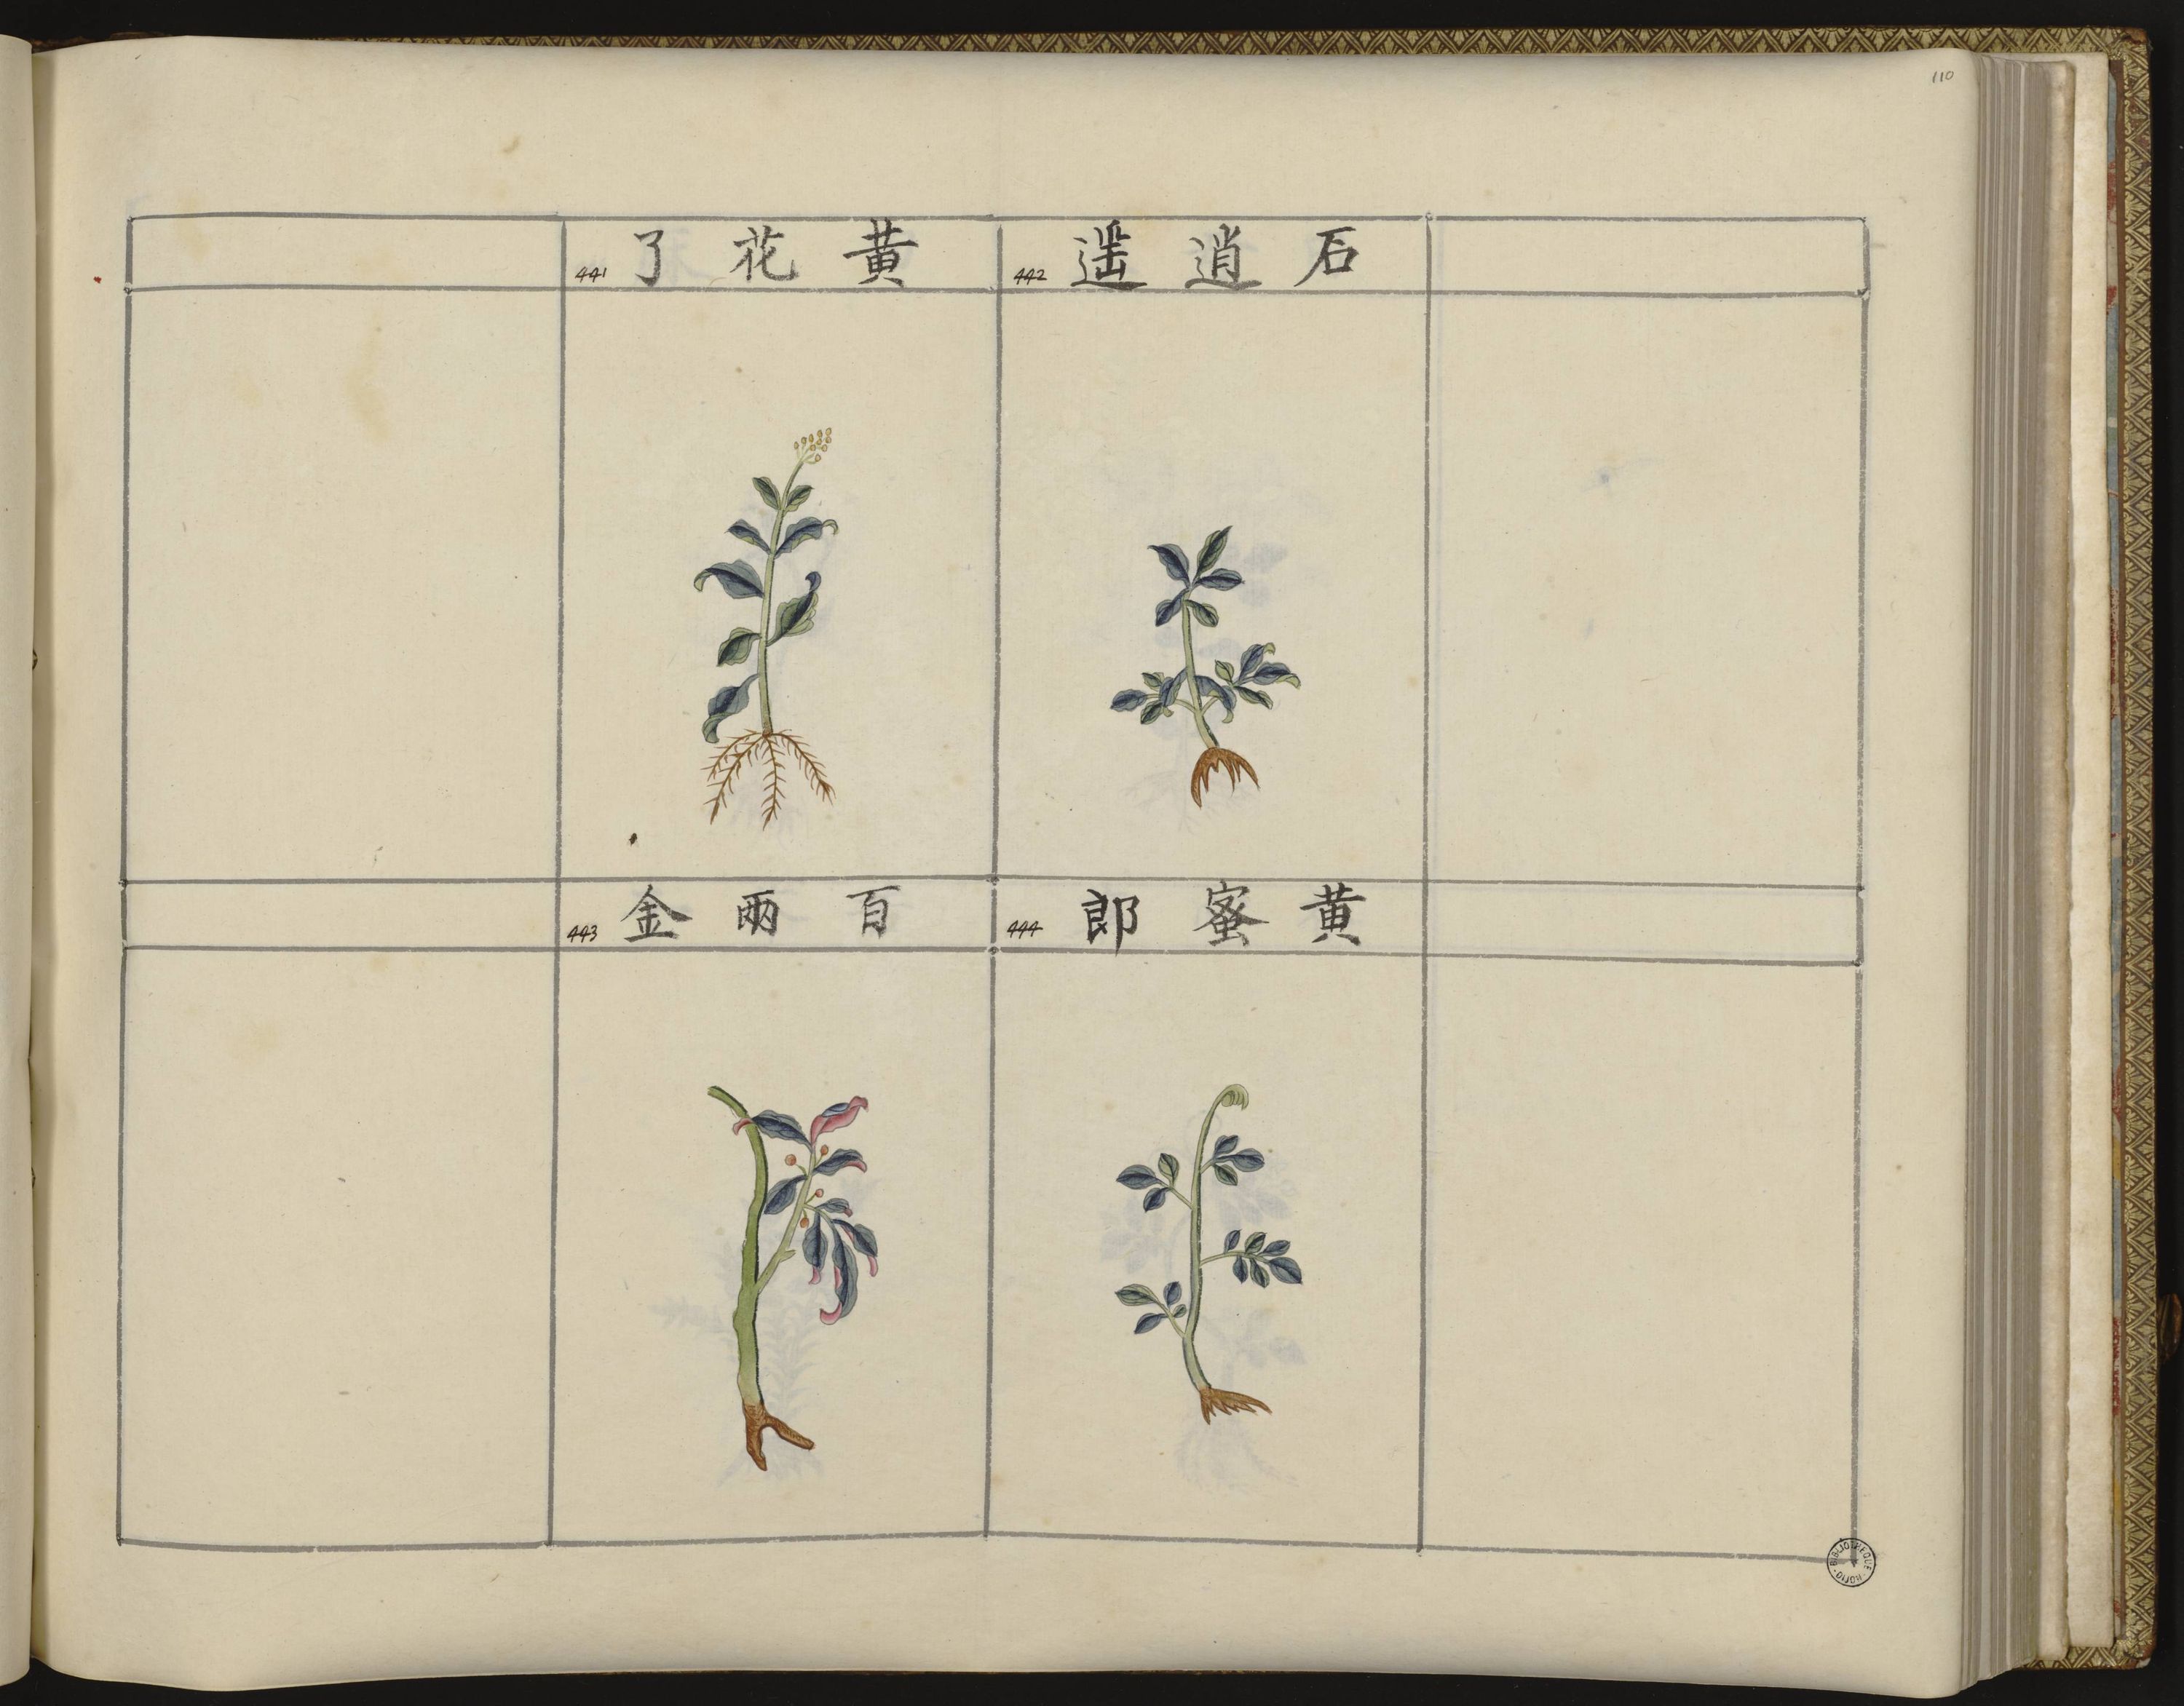 110
441 黄花了
442 石逍遥
443 百兩金
444 黄蜜郎
BIBLIOTHEQUE